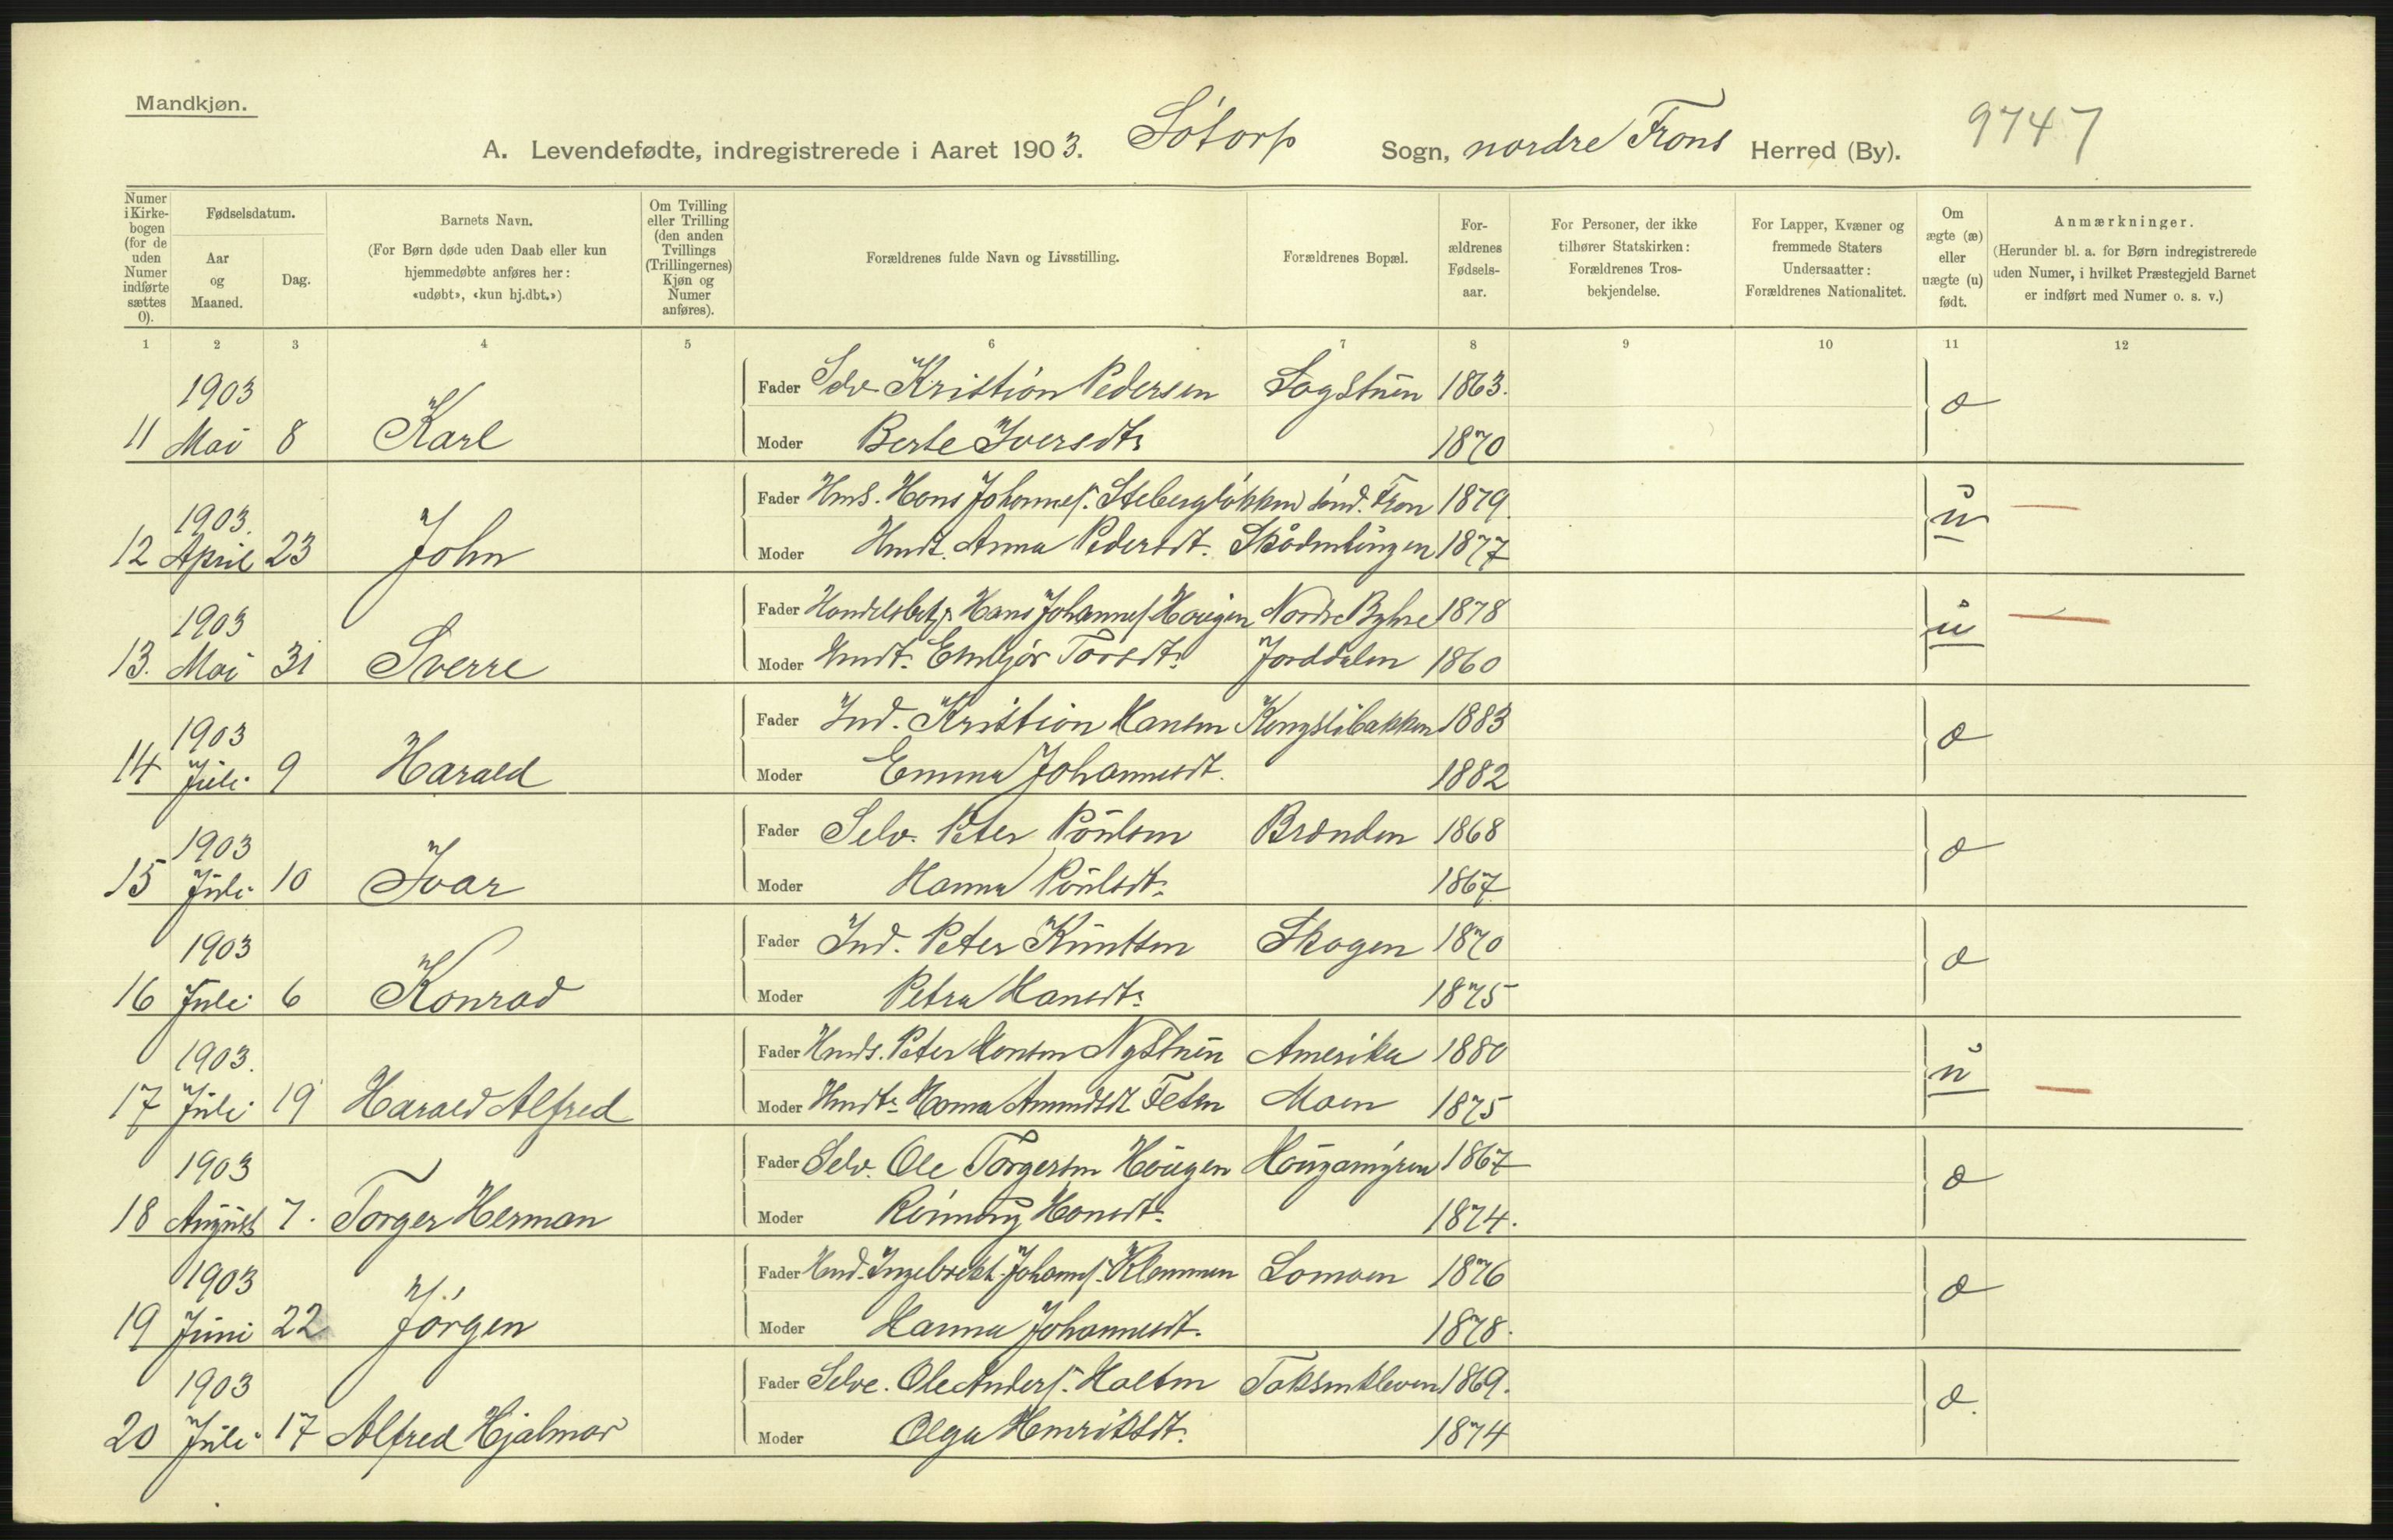 Mandkjøn.
A. Levendefødte, indregistrerede i Aaret 1903. Sótorp Sogn, nordre Frons Herred (By). 9747
Numer i Kirke-bogen (for de uden Numer indførte sættes 0).
Fødselsdatum.
Aar og Maaned.
Dag.
Barnets Navn.
(For Børn døde uden Daab eller kun hjemmedøbte anføres her: «udøbt», «kun hj.dbt.»)
Om Tvilling eller Trilling (den anden Tvillings (Trillingernes) Kjøn og Numer anføres).
Forældrenes fulde Navn og Livsstilling.
Forældrenes Bopæl.
For-ældrenes Fødsels-aar.
For Personer, der ikke tilhører Statskirken: Forældrenes Tros-bekjendelse.
For Lapper, Kvæner og fremmede Staters Undersaatter: Forældrenes Nationalitet.
Om ægte (æ) eller uægte (u) født.
Anmærkninger.
(Herunder bl. a. for Børn indregistrerede uden Numer, i hvilket Præstegjeld Barnet er indført med Numer o. s. v.)
1 2 3 4 5 6 7 8 9 10 11 12
1903 Fader Selv Kristian Pedersen 1863. æ
11 Mai 8 Karl Moder Berte Iversdt. 1870
1903. Fader Hans Johannes. sönd. Fron 1879. u
12 April 23 John Moder Anna Pedersdt. 1877
1903 Fader Hans Johannes. Haugen Nordre 1878 u
13. Mai 31 Sverre Moder Jorddalen 1860
1903 Fader Ind. Kristian Hansen Kongslibakken 1883 æ
14 Juli 9 Harald Moder Emma Johannesdt. 1882
1903 Fader Selv. Peter Poulsen Brænden 1868 æ
15 Juli 10 Ivar Moder Hanna Poulsdt. 1867
1903 Fader Ind. Peter Knutsen Skogen 1870 æ
16 Juli 6 Konrad Moder Petra Hansdt. 1875
1903. Fader Peter Hansen Nystuen Amerika 1880 u
17 Juli 19 Harald Alfred Moder Amundsdt. Moen 1875
1903 Fader Selv. Ole Torgersen Haugen Haugamyren 1867 æ
18 August 7. Torger Herman Moder Rönnaug Hansdt. 1874.
1903 Fader Ingebrekt Johannes. Klemmen Lomoen 1876 æ
19 Juni 22 Jörgen Moder Hanna Johannesdt. 1878.
1903 Fader Selve. Ole Anders. 1869. æ.
20 Juli 17 Alfred Hjalmar Moder Olga Henriksdt. 1874